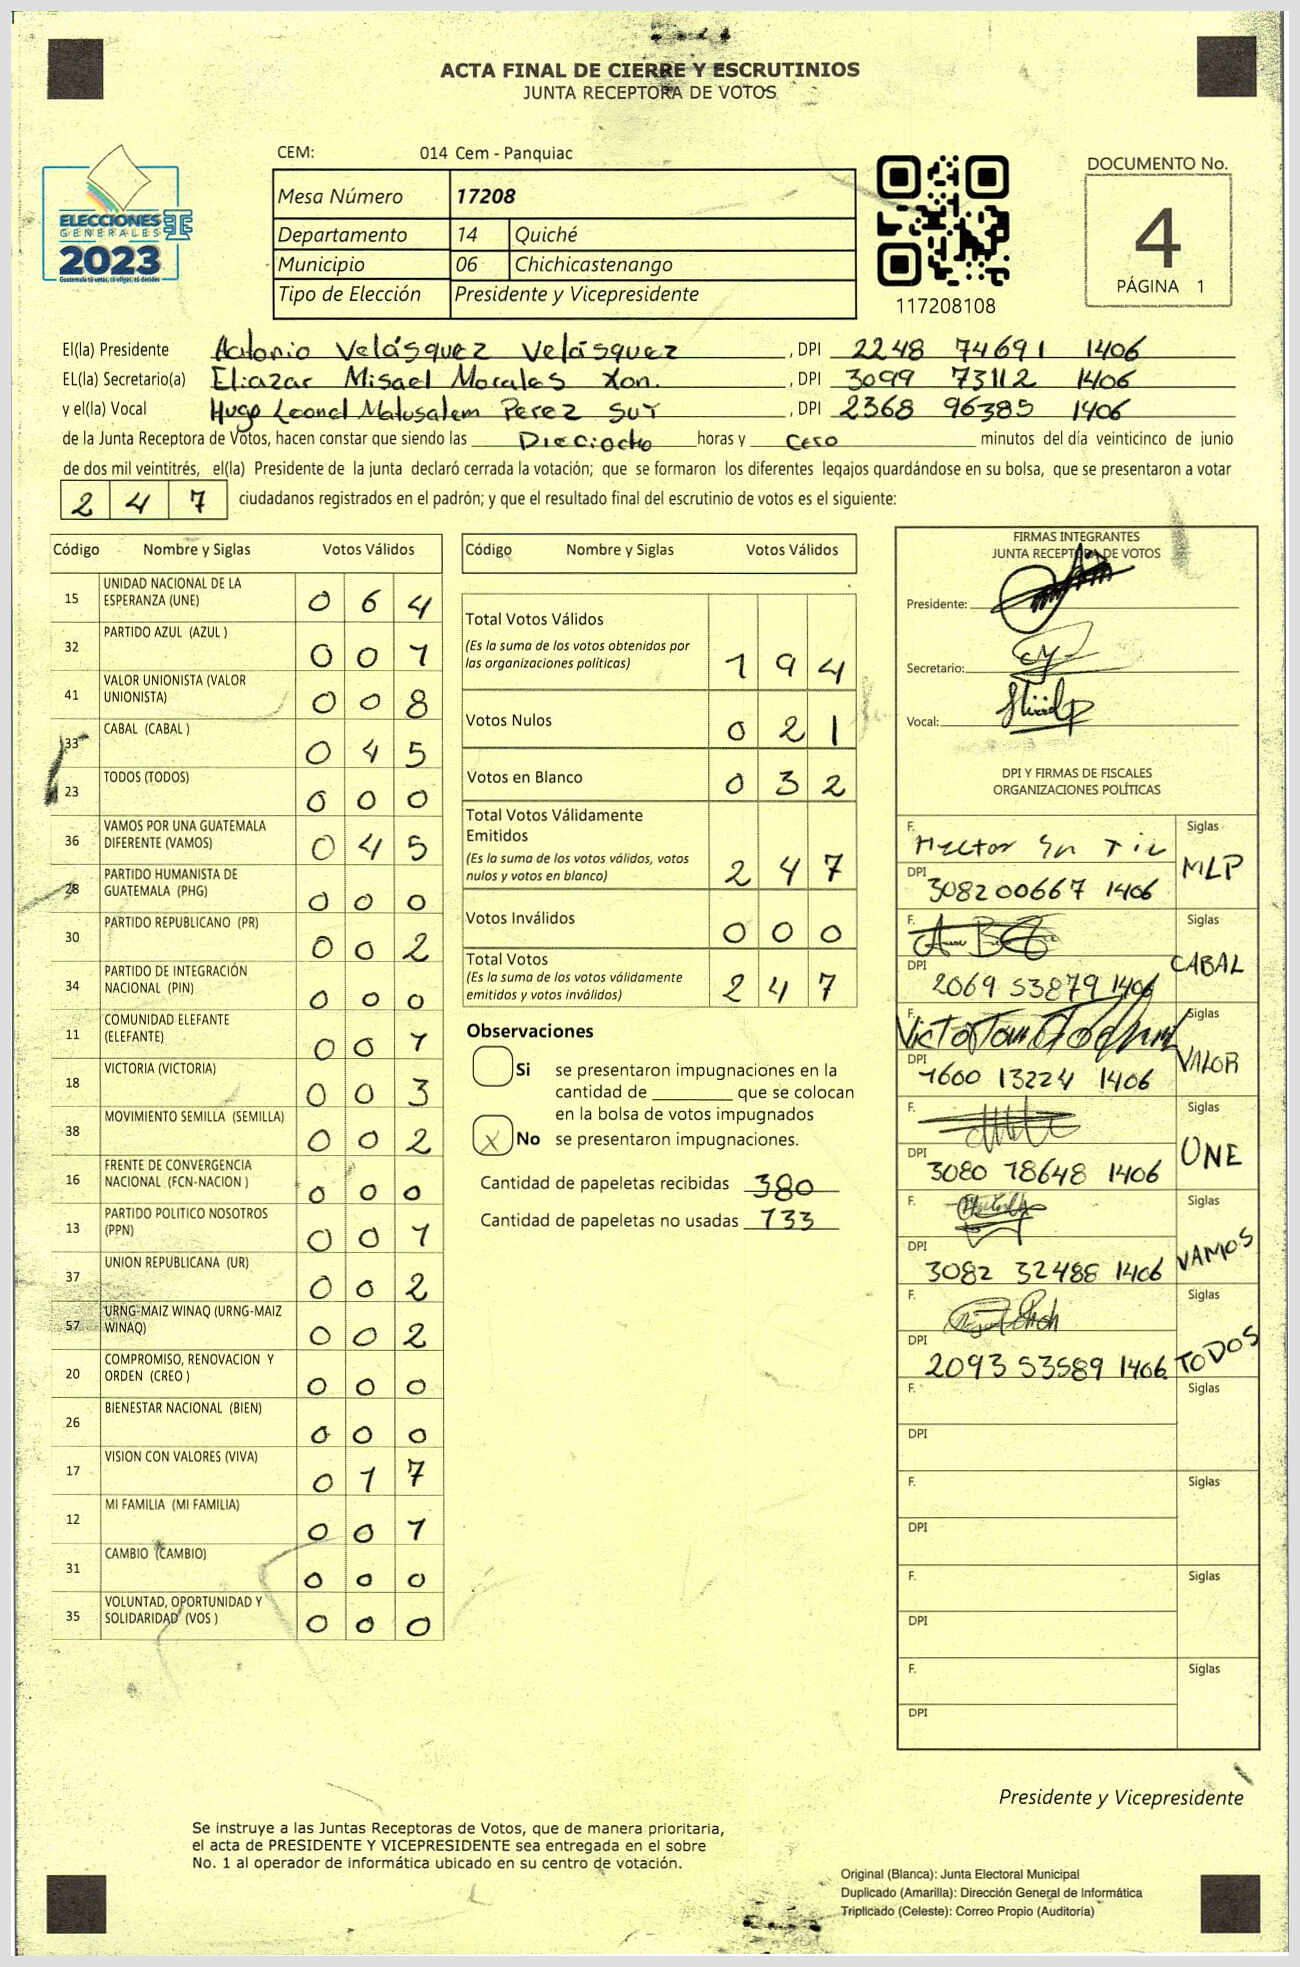 ACTA FINAL DE CIERRE Y ESCRUTINIOS
JUNTA RECEPTORA DE VOTOS
CEM: 014 Cem - Panquiac
ELECCIONES
GENERALES
2023
Mesa Número 17208
Departamento 14 Quiché
Municipio 06 Chichicastenango
Tipo de Elección Presidente y Vicepresidente
117208108
DOCUMENTO No.
4
PÁGINA 1
El(la) Presidente Antonio Velásquez Velásquez , DPI 2248 74691 1406
EL(la) Secretario(a) Eliazar Misael Morales Xon. , DPI 3099 73112 1406
y el(la) Vocal Hugo Leonel Matusalem Perez Suy , DPI 2368 96385 1406
de la Junta Receptora de Votos, hacen constar que siendo las Dieciocho horas y cero minutos del día veinticinco de junio
de dos mil veintitrés, el(la) Presidente de la junta declaró cerrada la votación; que se formaron los diferentes legajos quardándose en su bolsa, que se presentaron a votar
2 4 7 ciudadanos registrados en el padrón; y que el resultado final del escrutinio de votos es el siguiente:
Código Nombre y Siglas Votos Válidos
15 UNIDAD NACIONAL DE LA ESPERANZA (UNE) 0 6 4
32 PARTIDO AZUL (AZUL ) 0 0 1
41 VALOR UNIONISTA (VALOR UNIONISTA) 0 0 8
33 CABAL (CABAL ) 0 4 5
23 TODOS (TODOS) 0 0 0
36 VAMOS POR UNA GUATEMALA DIFERENTE (VAMOS) 0 4 5
28 PARTIDO HUMANISTA DE GUATEMALA (PHG) 0 0 0
30 PARTIDO REPUBLICANO (PR) 0 0 2
34 PARTIDO DE INTEGRACIÓN NACIONAL (PIN) 0 0 0
11 COMUNIDAD ELEFANTE (ELEFANTE) 0 0 1
18 VICTORIA (VICTORIA) 0 0 3
38 MOVIMIENTO SEMILLA (SEMILLA) 0 0 2
16 FRENTE DE CONVERGENCIA NACIONAL (FCN-NACION ) 0 0 0
13 PARTIDO POLITICO NOSOTROS (PPN) 0 0 1
37 UNION REPUBLICANA (UR) 0 0 2
57 URNG-MAIZ WINAQ (URNG-MAIZ WINAQ) 0 0 2
20 COMPROMISO, RENOVACION Y ORDEN (CREO ) 0 0 0
26 BIENESTAR NACIONAL (BIEN) 0 0 0
17 VISION CON VALORES (VIVA) 0 1 7
12 MI FAMILIA (MI FAMILIA) 0 0 1
31 CAMBIO (CAMBIO) 0 0 0
35 VOLUNTAD, OPORTUNIDAD Y SOLIDARIDAD (VOS ) 0 0 0
Código Nombre y Siglas Votos Válidos
Total Votos Válidos
(Es la suma de los votos obtenidos por
las organizaciones políticas) 1 9 4
Votos Nulos 0 2 1
Votos en Blanco 0 3 2
Total Votos Válidamente
Emitidos
(Es la suma de los votos válidos, votos
nulos y votos en blanco) 2 4 7
Votos Inválidos 0 0 0
Total Votos
(Es la suma de los votos válidamente
emitidos y votos inválidos) 2 4 7
Observaciones
Si se presentaron impugnaciones en la
cantidad de ________ que se colocan
en la bolsa de votos impugnados
X No se presentaron impugnaciones.
Cantidad de papeletas recibidas 380
Cantidad de papeletas no usadas 133
FIRMAS INTEGRANTES
JUNTA RECEPTORA DE VOTOS
Presidente:
Secretario:
Vocal:
DPI Y FIRMAS DE FISCALES
ORGANIZACIONES POLÍTICAS
F. Siglas
DPI 308200667 1406 MLP
F. Siglas
DPI 2069 53879 1406 CABAL
F. Siglas
DPI 1600 13224 1406 VALOR
F. Siglas
DPI 3080 18648 1406 UNE
F. Siglas
DPI 3082 32488 1406 VAMOS
F. Siglas
DPI 2093 53589 1406 TODOS
F. Siglas
DPI
F. Siglas
DPI
F. Siglas
DPI
F. Siglas
DPI
Presidente y Vicepresidente
Se instruye a las Juntas Receptoras de Votos, que de manera prioritaria,
el acta de PRESIDENTE Y VICEPRESIDENTE sea entregada en el sobre
No. 1 al operador de informática ubicado en su centro de votación.
Original (Blanca): Junta Electoral Municipal
Duplicado (Amarilla): Dirección General de Informática
Triplicado (Celeste): Correo Propio (Auditoría)